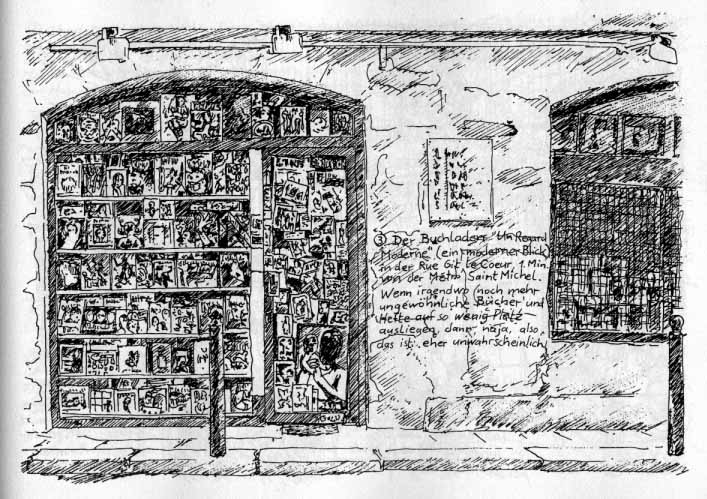 ③ Der Buchladen "Un Regard
Moderne" (ein moderner Blick)
in der Rue Gît Le Coeur, 1 Min
von der Métro Saint Michel.
Wenn irgendwo noch mehr
ungewöhnliche Bücher und
Hefte auf so wenig Platz
ausliegen, dann, naja, also,
das ist eher unwahrscheinlich